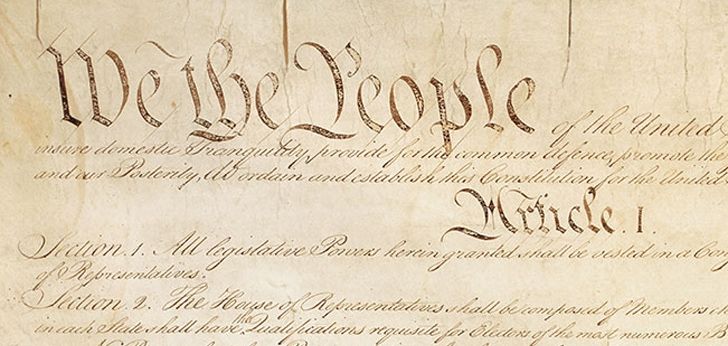 We the People of the United
insure domestic Tranquility, provide for the common defence, promote the
and our Posterity, do ordain and establish this Constitution for the United
Article. I.
Section. 1. All legislative Powers herein granted shall be vested in a Con
of Representatives.
Section. 2. The House of Representatives shall be composed of Members
in each State shall have the Qualifications requisite for Electors of the most numerous B